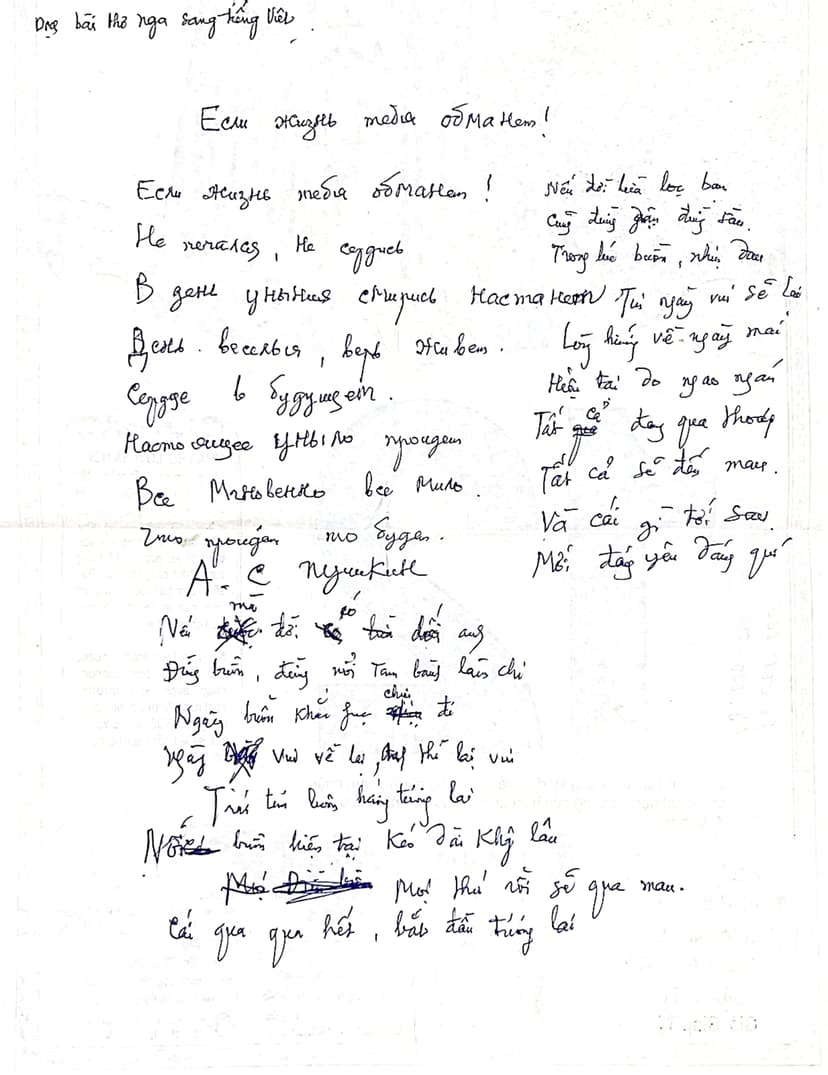 Dịch bài thơ nga sang tiếng Việt.
Если жизнь тебя обманет!
Если жизнь тебя обманет!
Не печалься, не сердись
В день уныния смирись настанет
День. веселья, верь живет.
Сердце в будущем.
Настоящее уныло пройдет
Все мгновенно все мило.
Что пройдет то будет.
А. С Пушкин
Nếu đời lừa lọc bạn
Cũng đừng giận đừng sầu.
Trong lúc buồn, nhịn đau
Thì ngày vui sẽ lại
Lòng hướng về ngày mai
Hiện tại do ngao ngán
Tất cả đang qua
Tất cả sẽ đến mau.
Và cái gì tới sau
Mới đáng yêu đáng quí
Nếu mà đời có dối anh
Đừng buồn, đừng nổi Tam bành làm chi
Ngày buồn khắc phục chịu đi
Ngày vui về lại, thì lại vui
Trái tim luôn hướng tương lai
Nỗi buồn hiện tại kéo dài không lâu
Mọi thứ rồi sẽ qua mau.
Cái qua qua hết, bắt đầu tương lai